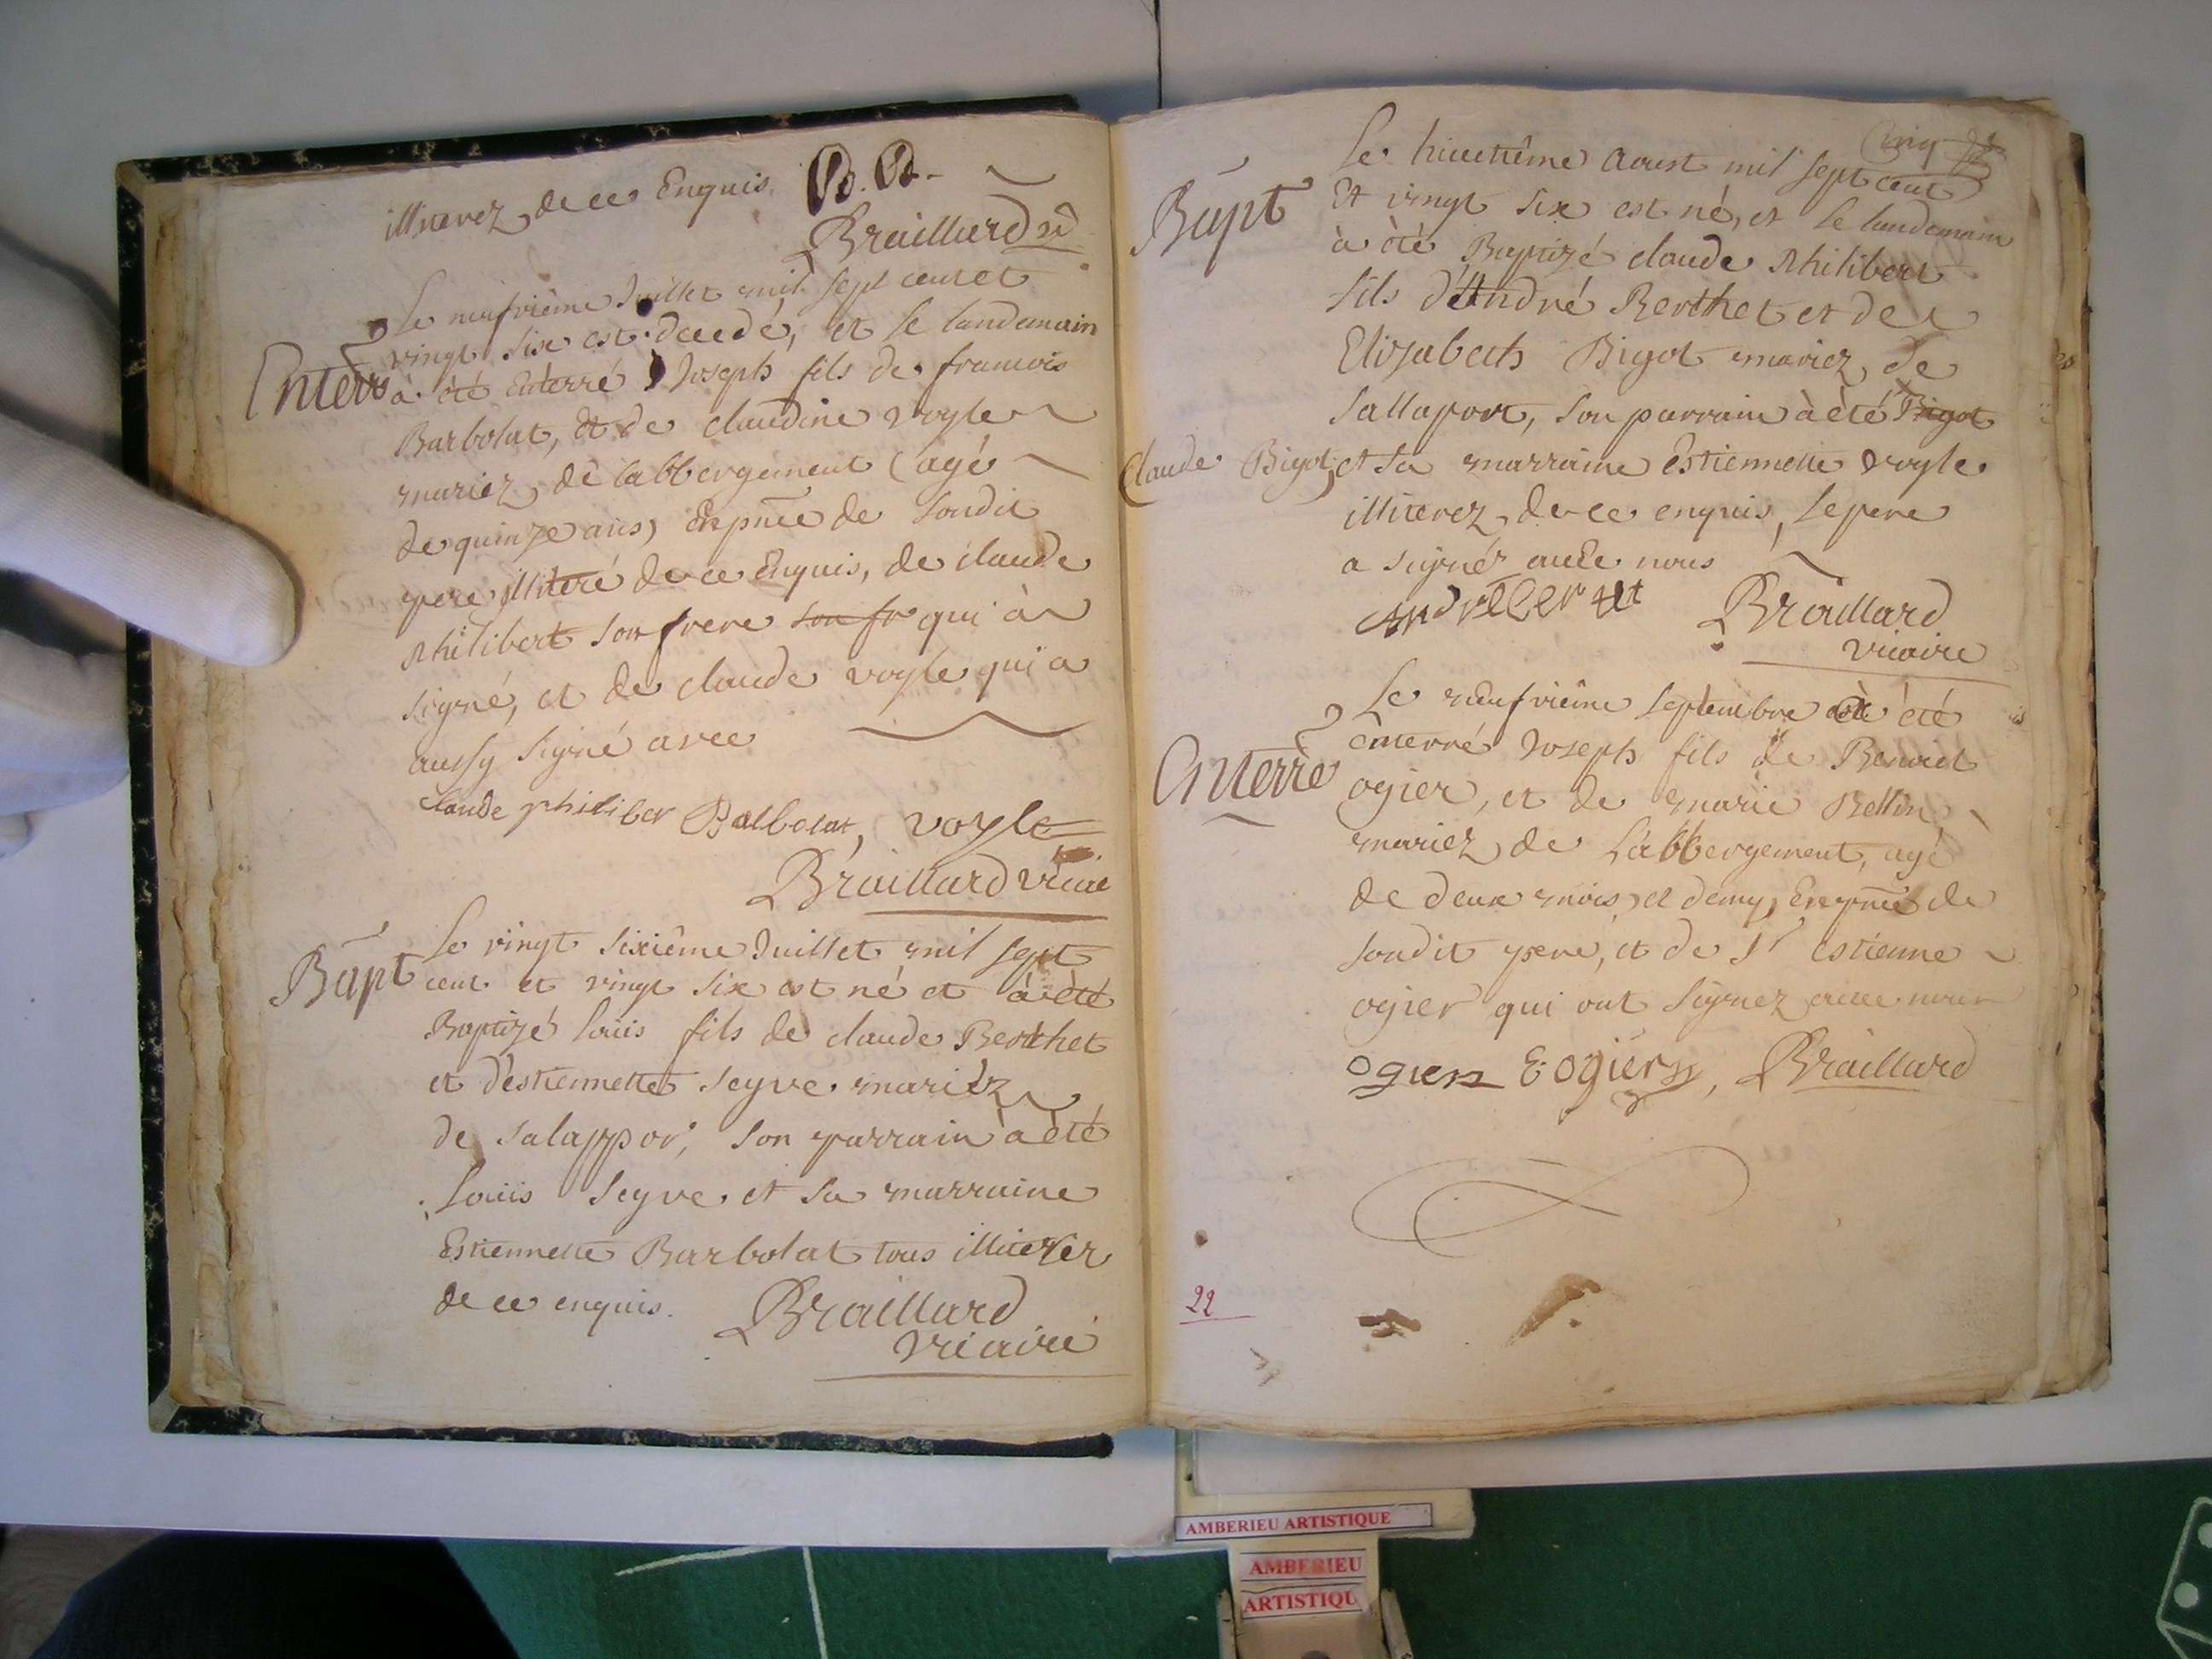 illiterez de ce Enquis B. B.
Braillard
Le neufvième Juillet mil sept cent et
vingt six est decedé, et le landemain
Enterré
à été Enterré Joseph fils de francois
Barbolat, et de claudine voyle
mariez de labbergement (agé
de quinze ans) En pnce de Soudit
pere illiteré de ce Enquis, de claude
Philibert son frere son fr qui à
signé, et de claude voyle qui a
aussy signé avec
claude philiber Balbolat, voyle
Braillard vicaire
Bapt
Le vingt sixième Juillet mil sept
cent et vingt six est né et à été
Baptizé Louis fils de claude Berthet
et d'estiennette Seyve mariez
de Salappor, son parrain à été
Louis Seyve et sa marraine
Estiennette Barbolat tous illiterez
de ce enquis. Braillard
vicaire
Cinq
Le huictième Aoust mil sept cent
Bapt
Et vingt six est né, et le landemain
à été Baptizé claude Philibert
fils d'André Berthet et de
Elizabeth Bigot mariez de
Sallaport, son parrain à été Bigot
Claude Bigot, et sa marraine Estiennette voyle
illiterez de ce enquis, le pere
a signéz avec nous
Braillard
vicaire
Le neufvième Septembre à été
Enterré
enterré Joseph fils de Benoict
ogier, et de marie Bellin
mariez de Labbergement, agé
de deux mois et demy, En pnce de
soudit pere, et de Sr Estienne
ogier qui ont signez avec nous
ogier E ogier, Braillard
22
AMBERIEU ARTISTIQUE
AMBERIEU
ARTISTIQU